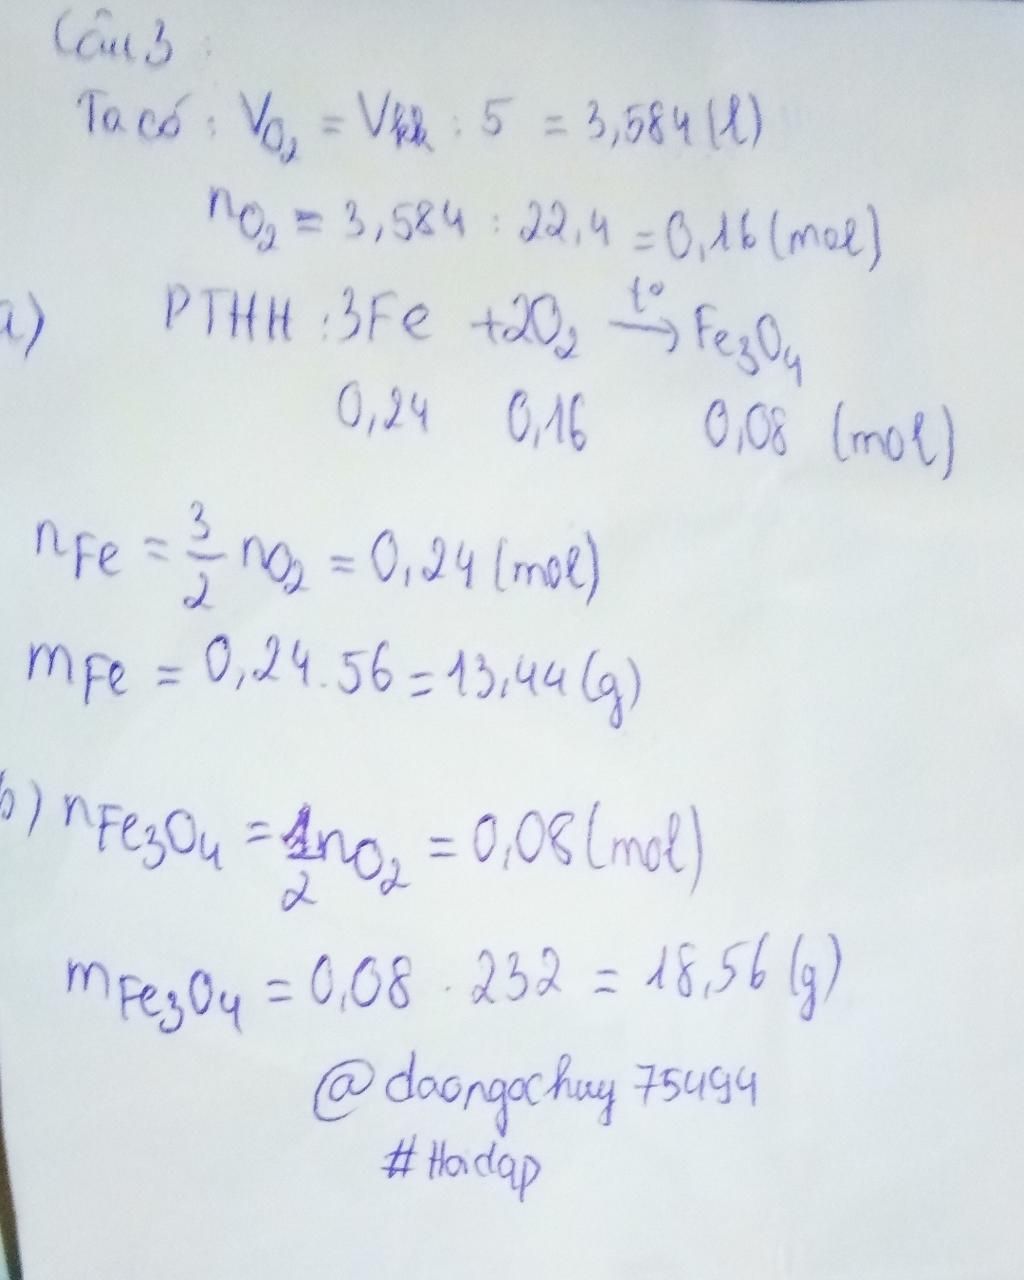 Câu 3 :
Ta có : V_O₂ = V_kk : 5 = 3,584 (l)
n_O₂ = 3,584 : 22,4 = 0,16 (mol)
a) PTHH : 3Fe + 2O₂ —t°→ Fe₃O₄
0,24 0,16 0,08 (mol)
n_Fe = 3/2 n_O₂ = 0,24 (mol)
m_Fe = 0,24 . 56 = 13,44 (g)
b) n_Fe₃O₄ = 1/2 n_O₂ = 0,08 (mol)
m_Fe₃O₄ = 0,08 . 232 = 18,56 (g)
@daongochuy75494
#Hoidap